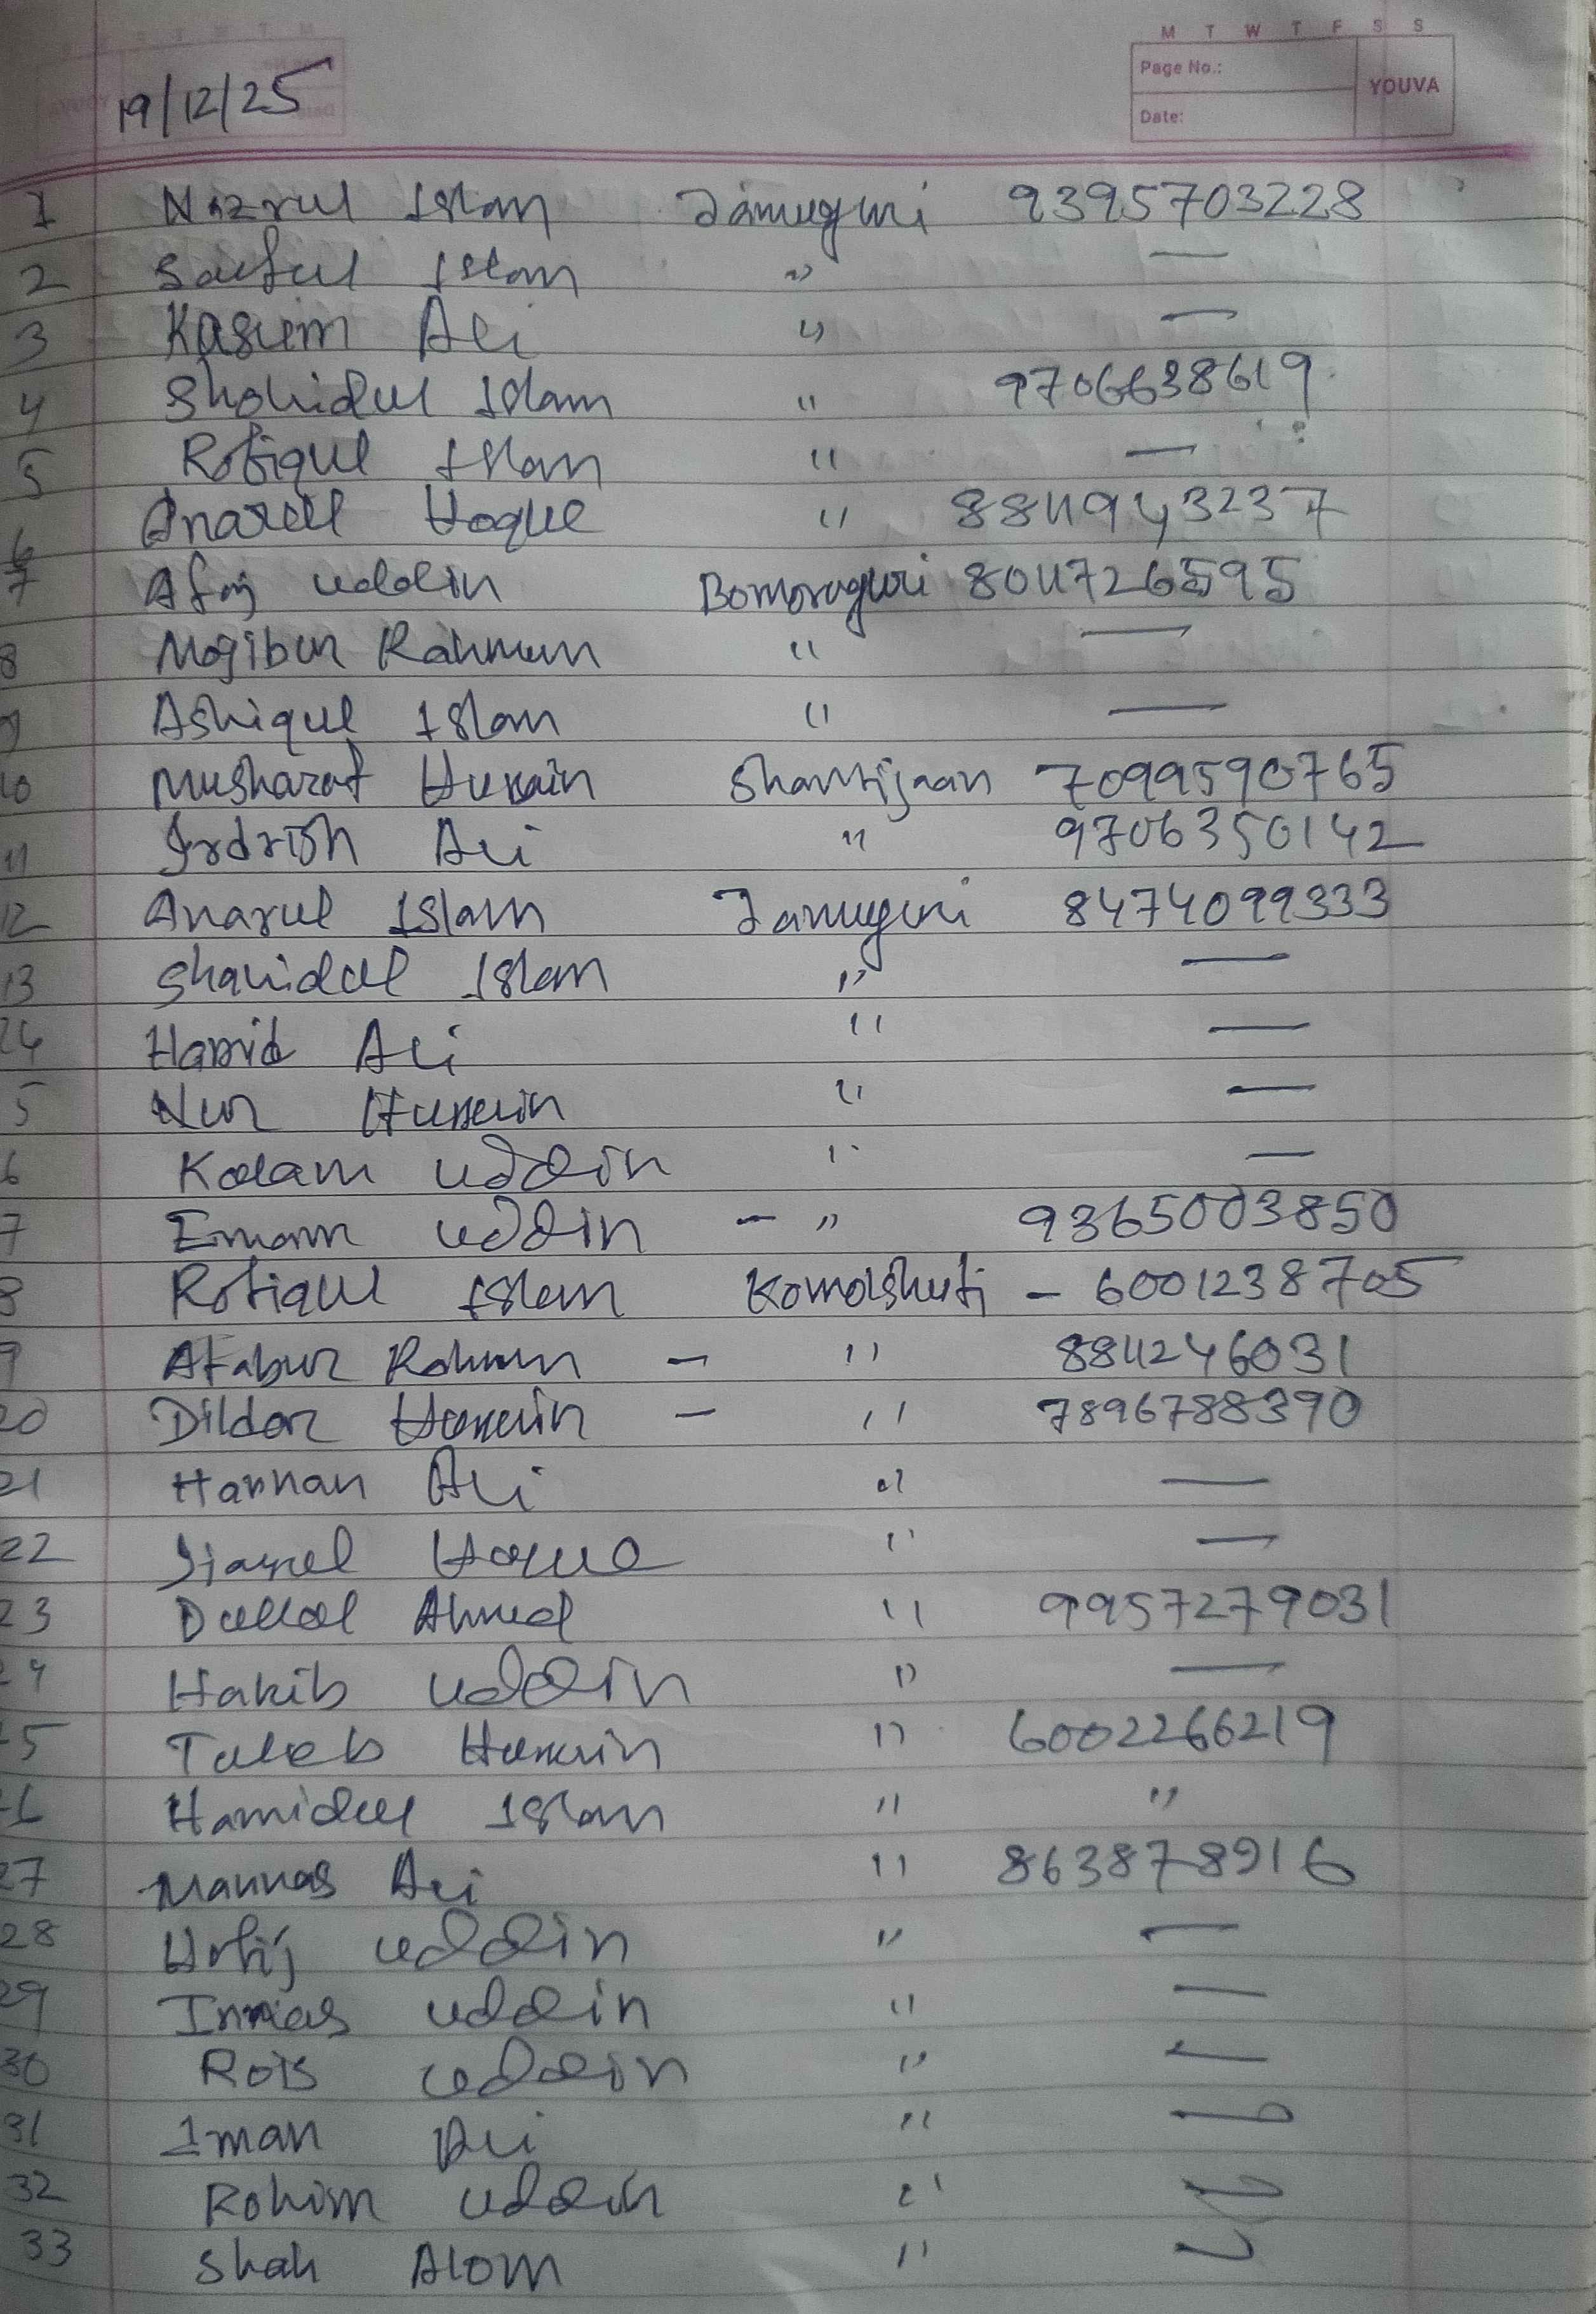 M T W T F S S
Page No.:
YOUVA
Date:
19/12/25
1 Nazrul Islam Jamuguri 9395703228
2 Saiful Islam " —
3 Kasim Ali " —
4 Shohidul Islam " 9706638619
5 Rofiqul Islam " —
6 Anarul Hoque " 8811943237
7 Afaj uddin Bomoraguri 8011726595
8 Mojibur Rahman " —
9 Ashiqul Islam " —
10 Musharaf Hussain Shantijaan 7099590765
11 Irdrish Ali " 9706350142
12 Anarul Islam Jamuguri 8474099333
13 Shahidul Islam " —
14 Hamid Ali " —
5 Nur Hussain " —
6 Kalam uddin " —
7 Emam uddin - " 9365003850
8 Rofiqul Islam - 6001238705
9 Atabur Rahman - " 8811246031
20 Dildar Hussain - " 7896788390
21 Hannan Ali " —
22 Hoque " —
23 Dullal Ahmed " 9957279031
24 Hakib uddin " —
25 Taleb Hussain " 6002266219
26 Hamidul Islam " "
27 Mannas Ali " 863878916
28 Hofij uddin " —
29 uddin " —
30 Rois uddin " —
31 Iman Ali " —
32 Rohim uddin "
33 Shah Alom "